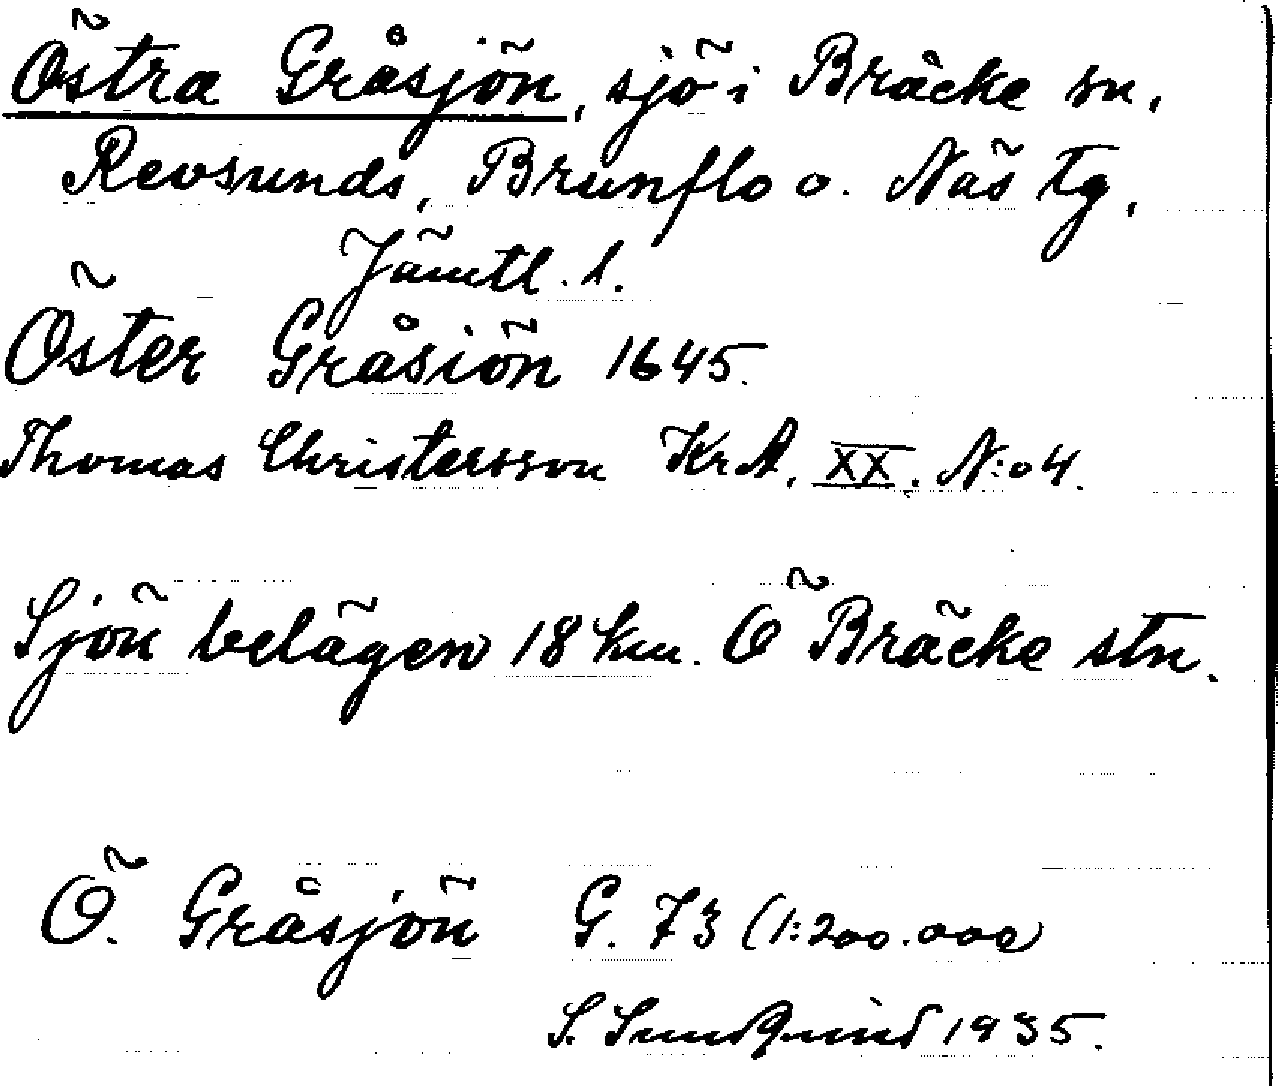 Östra Gråsjön, sjö i Bräcke sn,
Revsunds, Brunflo o. Näs tg,
Jämtl. l.
Öster Gråsiön 1645.
Thomas Christersson KrA, XX. N:o 4.
Sjön belägen 18 km. Ö Bräcke stn.
Ö. Gråsjön G. 73 (1:200.000)
S. Sundqvist 1935.